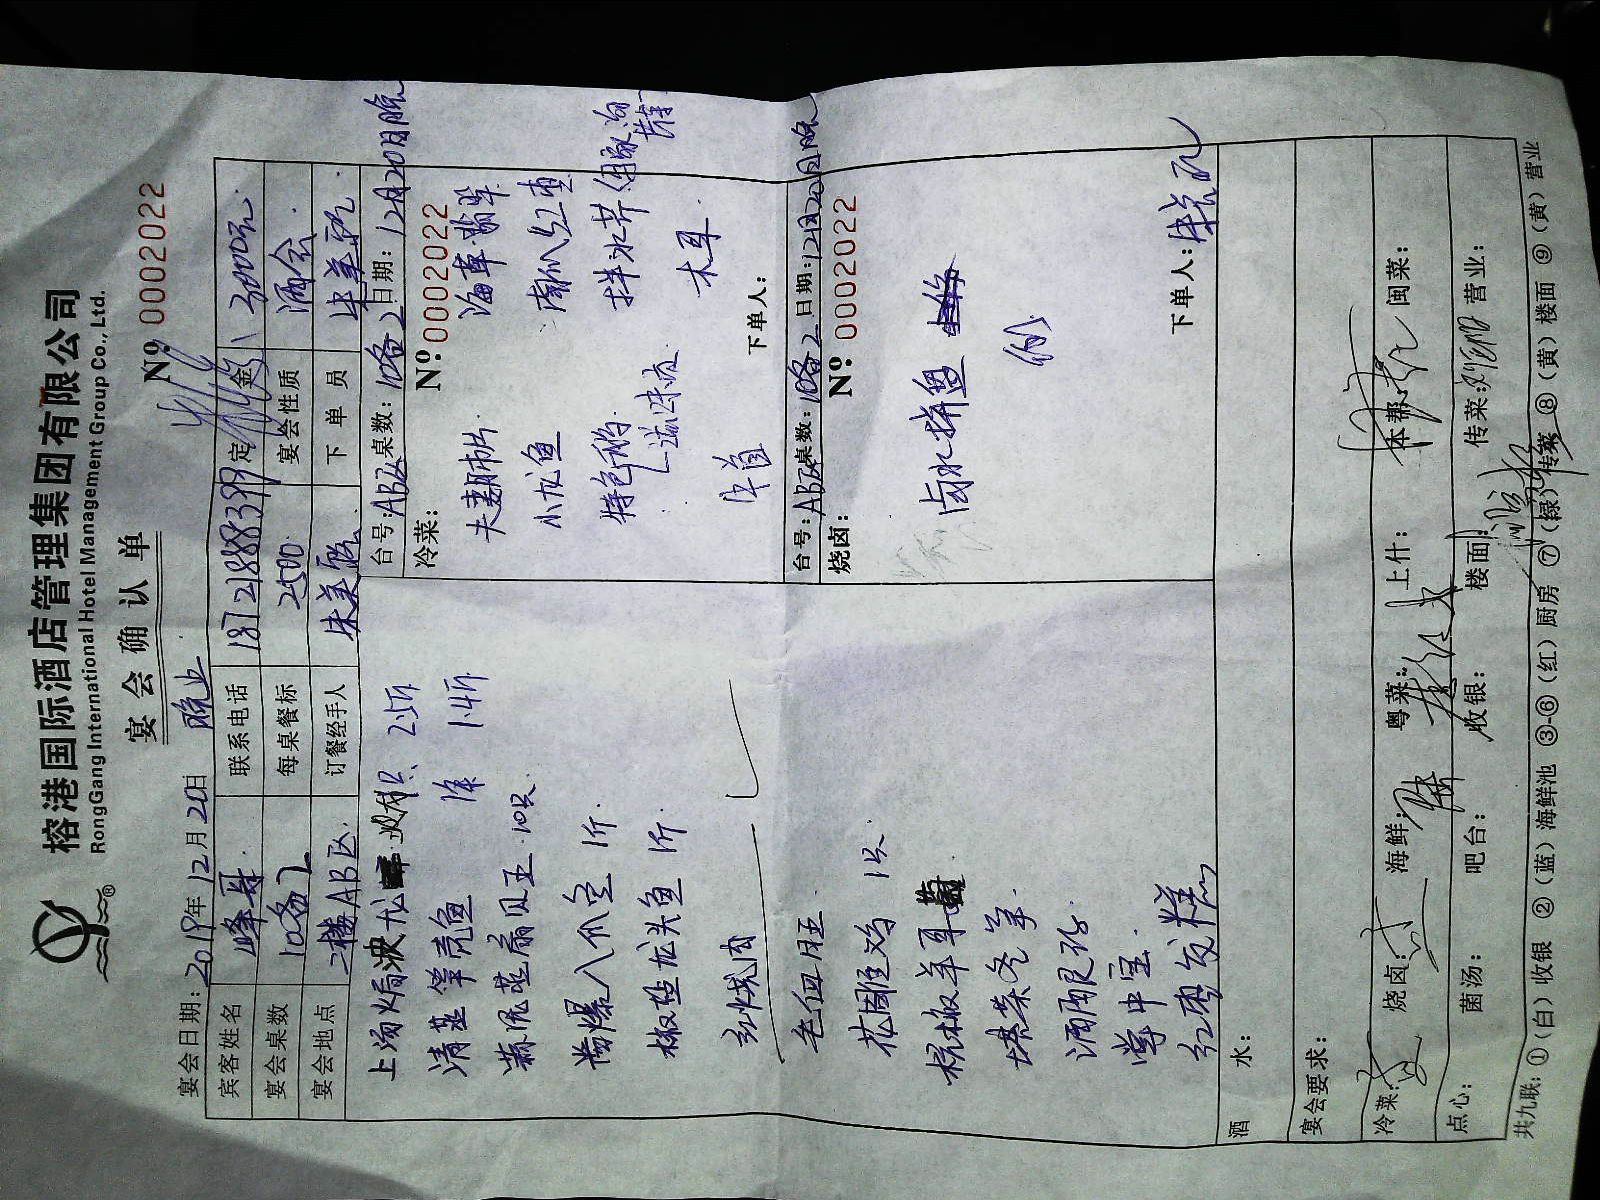 榕港国际酒店管理集团有限公司
RongGang International Hotel Management Group Co., Ltd.
宴会确认单
宴会日期: 2019年12月20日 晚业
Nº: 0002022
宾客姓名 峰哥 联系电话 18721888399 定金 3000元
宴会桌数 10备2 每桌餐标 2500 宴会性质 酒会
宴会地点 2楼AB区 订餐经手人 朱美 下单员 朱美
上汤焗波龙 2.5斤
清蒸笋壳鱼 1条 1.4斤
蒜泥蒸扇贝王 10只
酱爆八爪 1斤
椒盐龙头鱼 1斤
红烧肉
毛血旺
花雕鸡 1只
杭椒羊
塔菜冬笋
酒酿
掌中宝
红枣发糕
台号: AB区 桌数: 10备2 日期: 12月20日晚
冷菜: Nº: 0002022
夫妻肺片 海草翡翠
小龙鱼 南瓜红枣
特色鸭 拌水芹
木耳
下单人:
台号: AB区 桌数: 10备2 日期: 12月20日晚
烧卤: Nº 0002022
卤水拼盘
下单人:
酒水:
宴会要求:
冷菜: 烧卤: 海鲜: 粤菜: 上什: 本帮: 闽菜:
点心: 菌汤: 吧台: 收银: 楼面: 传菜: 营业:
共九联: ①(白)收银 ②(蓝)海鲜池 ③-⑥(红)厨房 ⑦(绿)传菜 ⑧(黄)楼面 ⑨(黄)营业